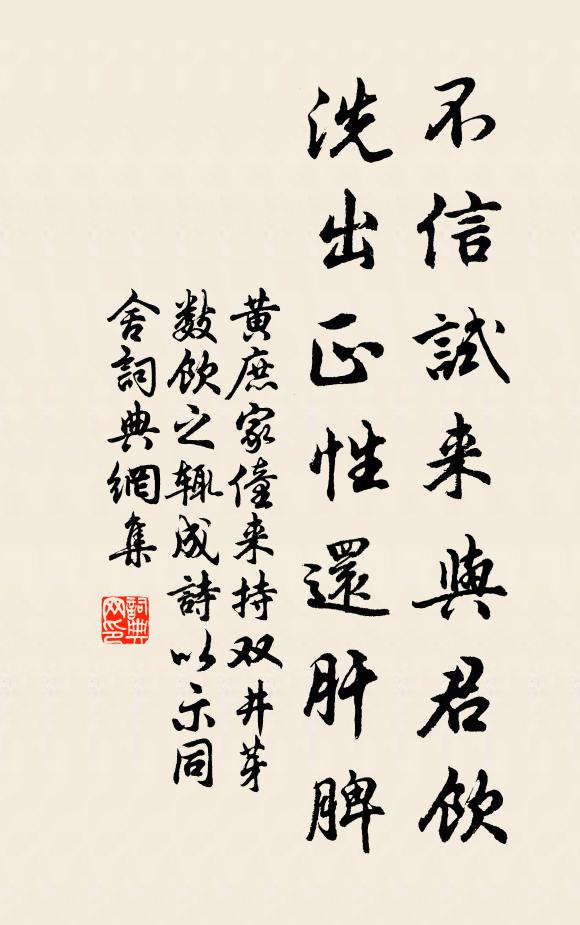 不信試来與君飲
洗出正性還肝脾
黄庶家僮来持双井芽
数飲之輙成詩以示同
舍詞典網集
詞典
网印